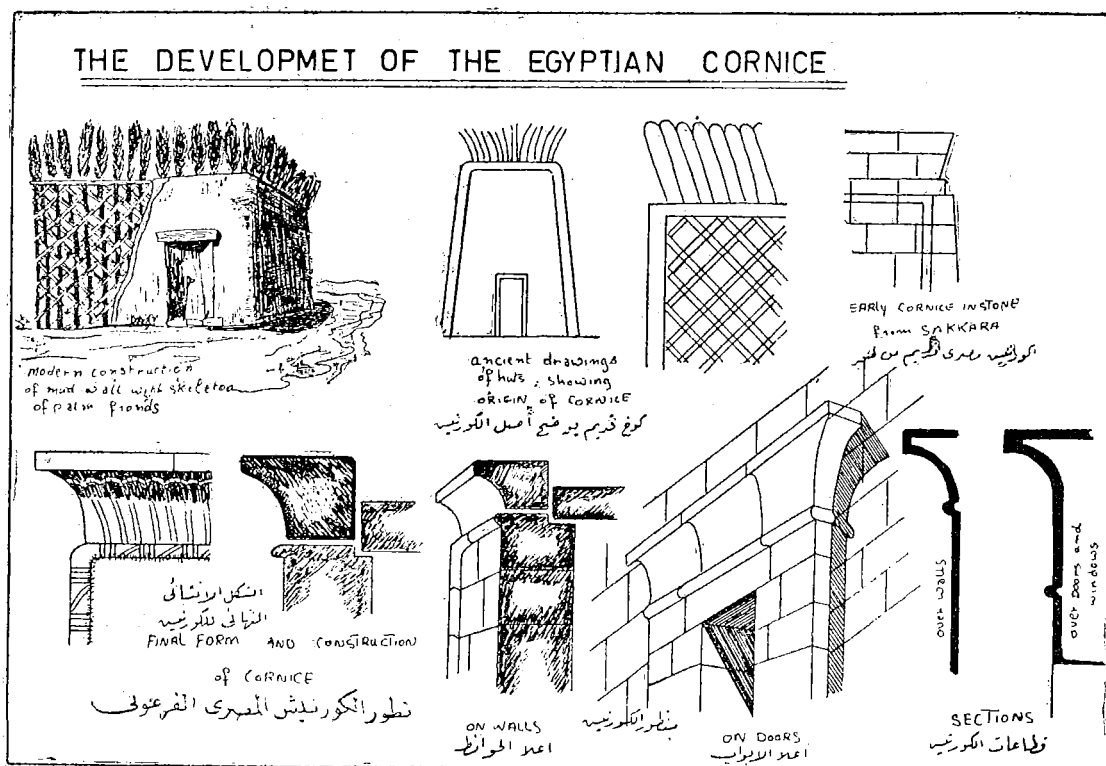 THE DEVELOPMET OF THE EGYPTIAN CORNICE
modern construction
of mud wall with skeleton
of palm fronds
ancient drawings
of huts, showing
ORIGIN of CORNICE
كوخ قديم يوضح أصل الكورنيش
EARLY CORNICE IN STONE
from SAKKARA
كورنيش مصرى قديم من
الشكل الإنشائى
النهائى للكورنيش
FINAL FORM AND CONSTRUCTION
of CORNICE
تطور الكورنيش المصرى الفرعونى
ON WALLS
اعلا الحوائط
منظور الكورنيش
ON DOORS
اعلا الابواب
over walls
over Doors and
windows
SECTIONS
قطاعات الكورنيش